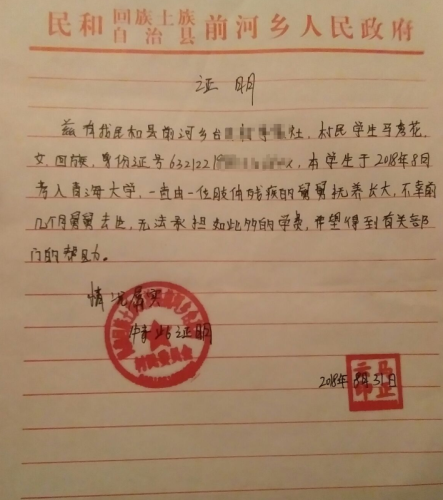 民和回族土族自治县前河乡人民政府
证明
兹有我民和县前河乡台 灶,村民学生马秀花,
女,回族,身份证号6321221 x,本学生于2018年8月
考入青海大学,一直由一位肢体残疾的舅舅抚养长大,不幸前
几个月舅舅去世,无法承担如此多的学费,希望得到有关部
门的帮助。
情况属实
特此证明
村民委员会
2018年8月31日